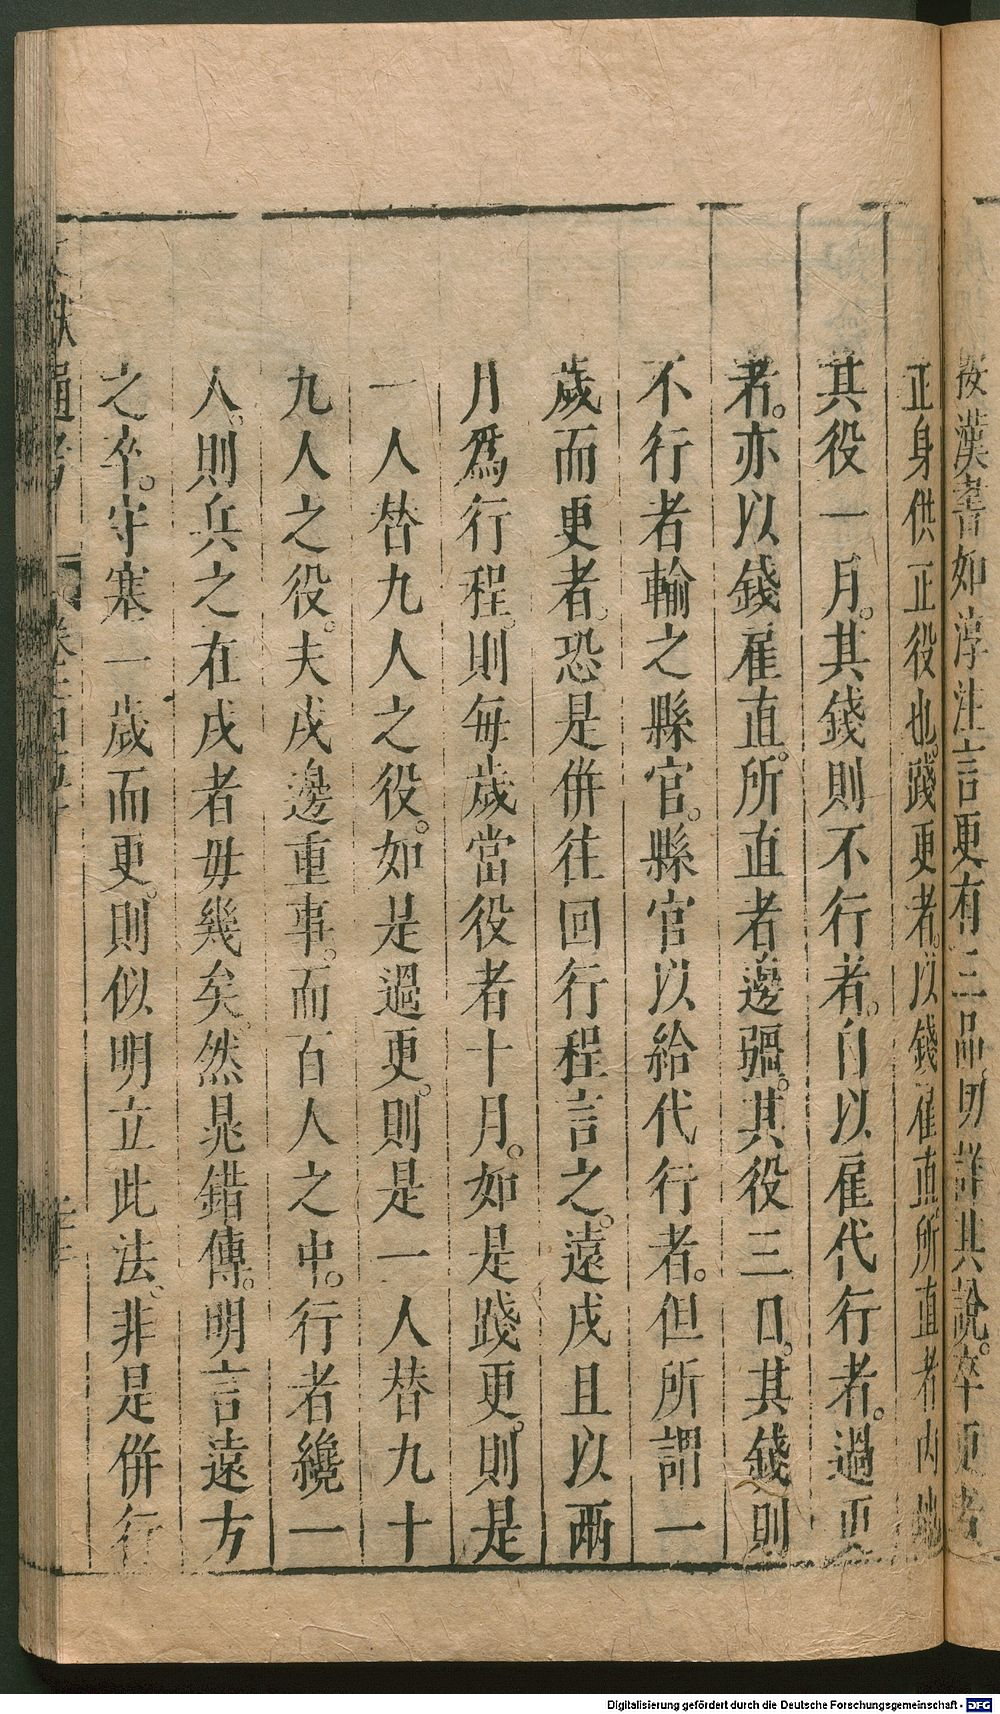 按漢書如淳注言更有三品明詳其說。卒更者
正身供正役也。踐更者。以錢雇直。所直者內地
其役一月。其錢則不行者。自以雇代行者。過更
者。亦以錢雇直。所直者邊疆。其役三日。其錢則
不行者輸之縣官。縣官以給代行者。但所謂一
歲而更者。恐是併往回行程言之。遠戍且以兩
月爲行程。則每歲當役者十月。如是踐更。則是
一人替九人之役。如是過更。則是一人替九十
九人之役。夫戍邊重事。而百人之中。行者纔一
人。則兵之在戍者毋幾矣。然晁錯傳。明言遠方
之卒。守塞一歲而更。則似明立此法。非是併行
文獻通考 卷之一百四十
Digitalisierung gefördert durch die Deutsche Forschungsgemeinschaft - DFG